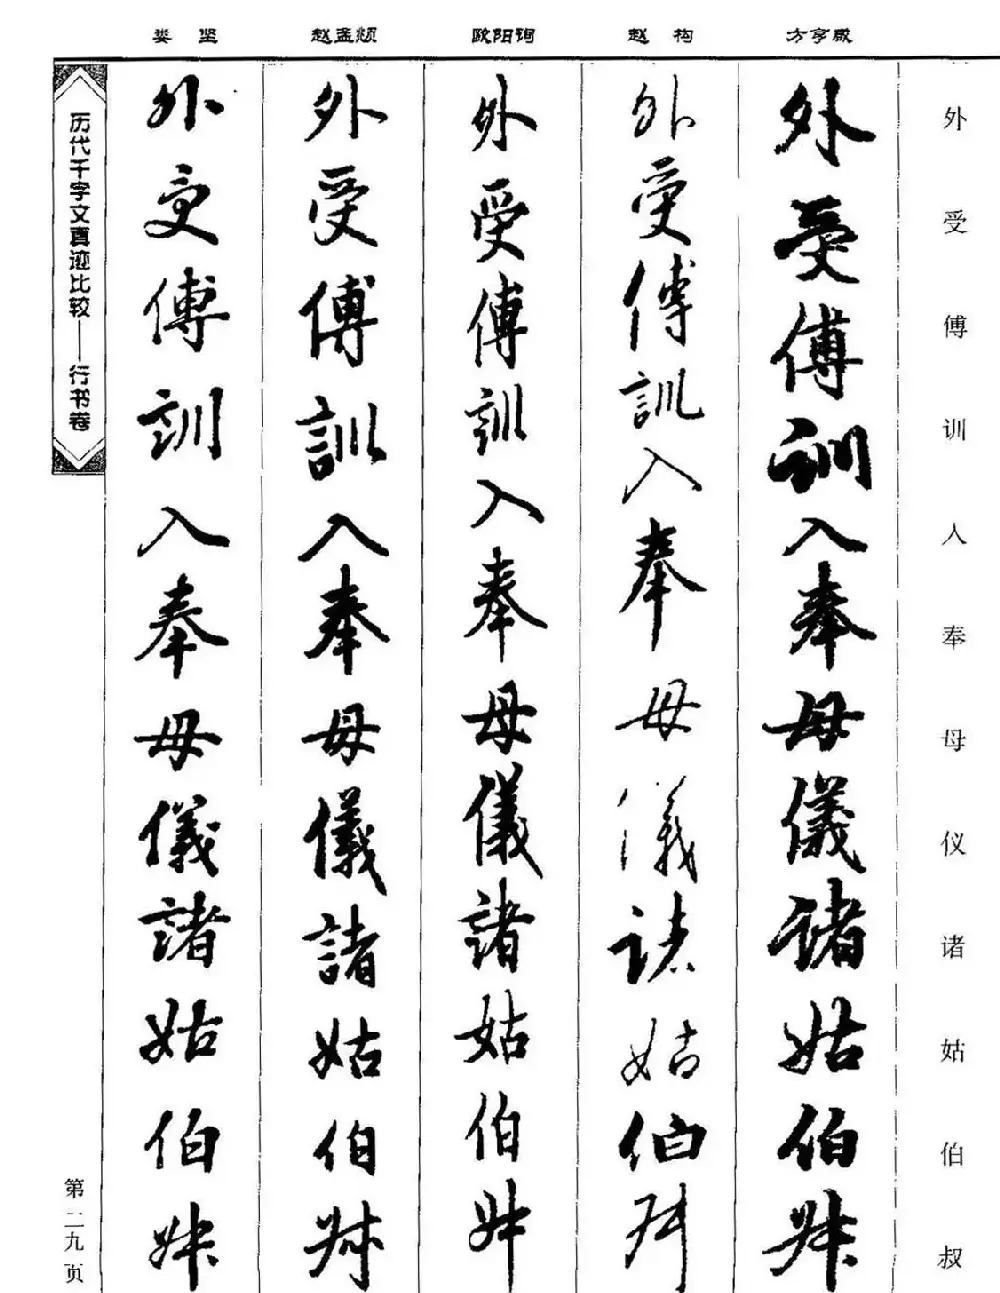 娄坚 赵孟頫 欧阳询 赵构 方亨咸
外受傅训人奉母仪诸姑伯叔
外受傅訓入奉母儀諸姑伯叔
外受傅訓入奉母儀諸姑伯叔
外受傅訓入奉母儀諸姑伯叔
外受傅訓入奉母儀諸姑伯叔
外受傅訓入奉母儀諸姑伯叔
历代千字文真迹比较——行书卷
第二九页